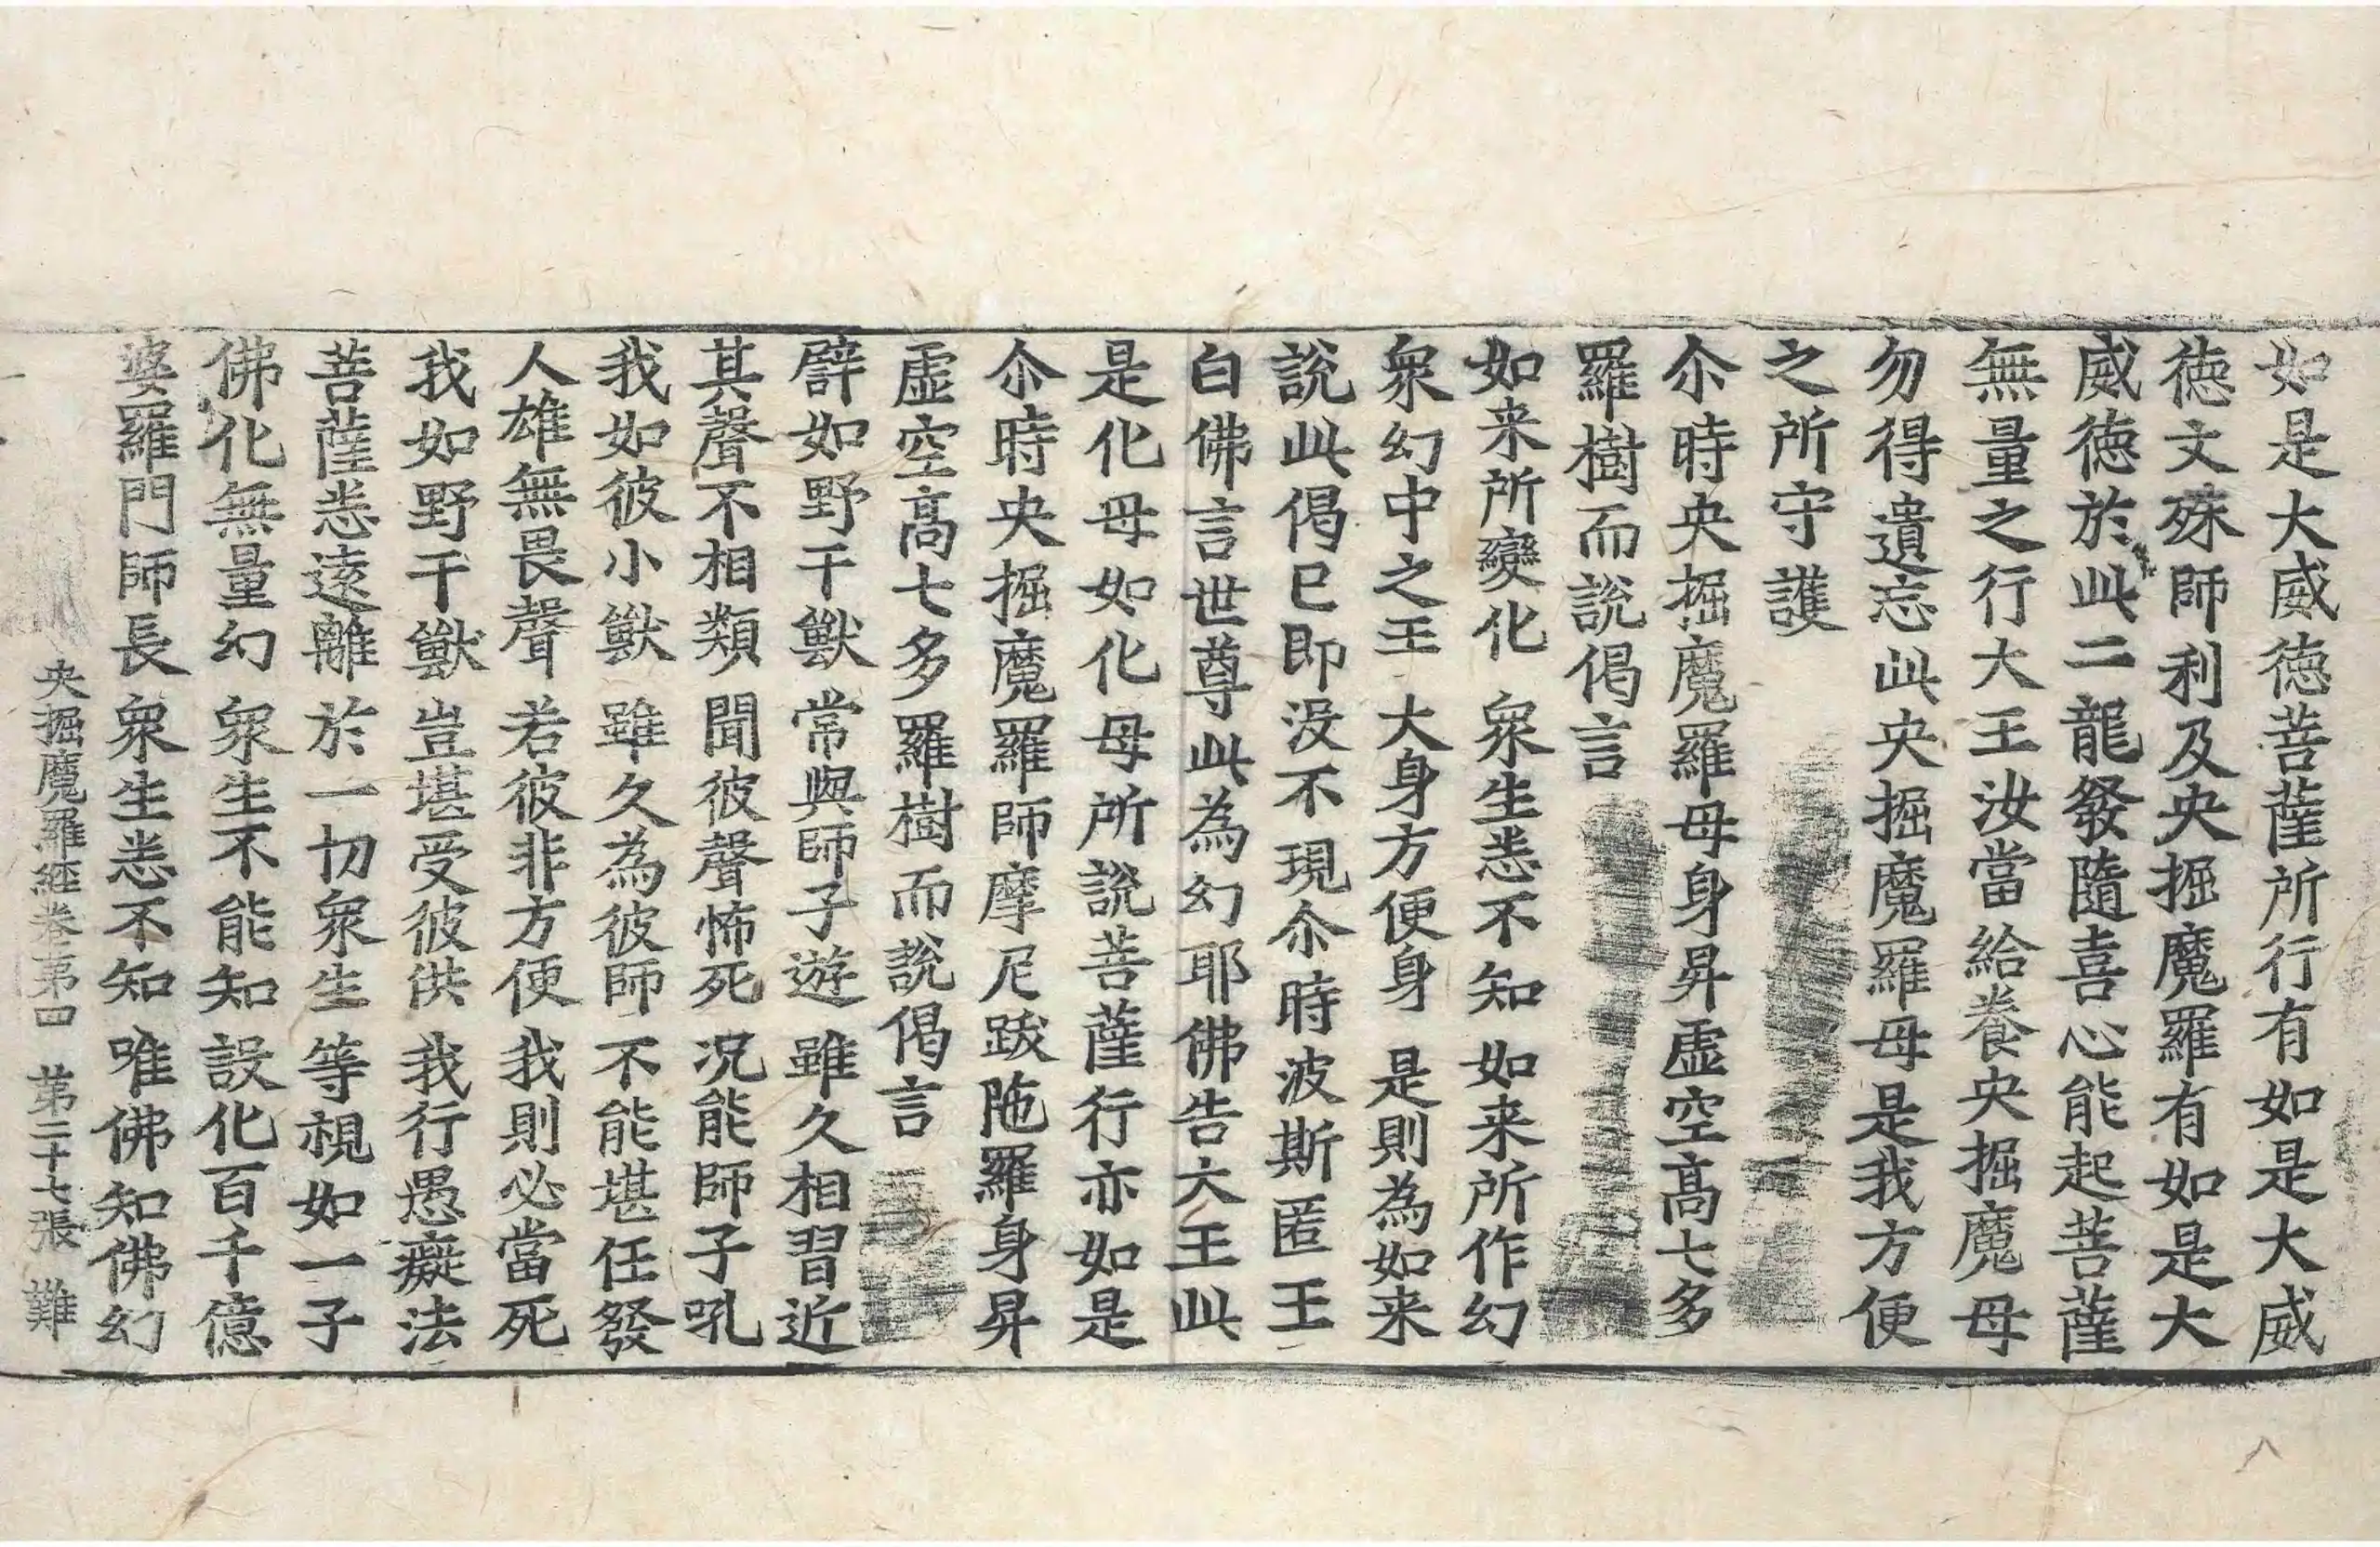 如是大威徳菩薩所行有如是大威
徳文殊師利及央掘魔羅有如是大
威徳於此二龍發隨喜心能起菩薩
無量之行大王汝當給養央掘魔母
勿得遺忘此央掘魔羅母是我方便
之所守護
尒時央掘魔羅母身昇虛空高七多
羅樹而說偈言
如来所變化 衆生悉不知 如来所作幻
衆幻中之王 大身方便身 是則為如来
說此偈已即没不現尒時波斯匿王
白佛言世尊此為幻耶佛告大王此
是化母如化母所說菩薩行亦如是
尒時央掘魔羅師摩尼跋陁羅身昇
虛空高七多羅樹而說偈言
譬如野干獸 常與師子遊 雖久相習近
其聲不相類 聞彼聲怖死 况能師子吼
我如彼小獸 雖久為彼師 不能堪任發
人雄無畏聲 若彼非方便 我則必當死
我如野干獸 豈堪受彼供 我行愚癡法
菩薩悉遠離 於一切衆生 等視如一子
佛化無量幻 衆生不能知 設化百千億
婆羅門師長 衆生悉不知 唯佛知佛幻
央掘魔羅経卷第四 第二十七張 難